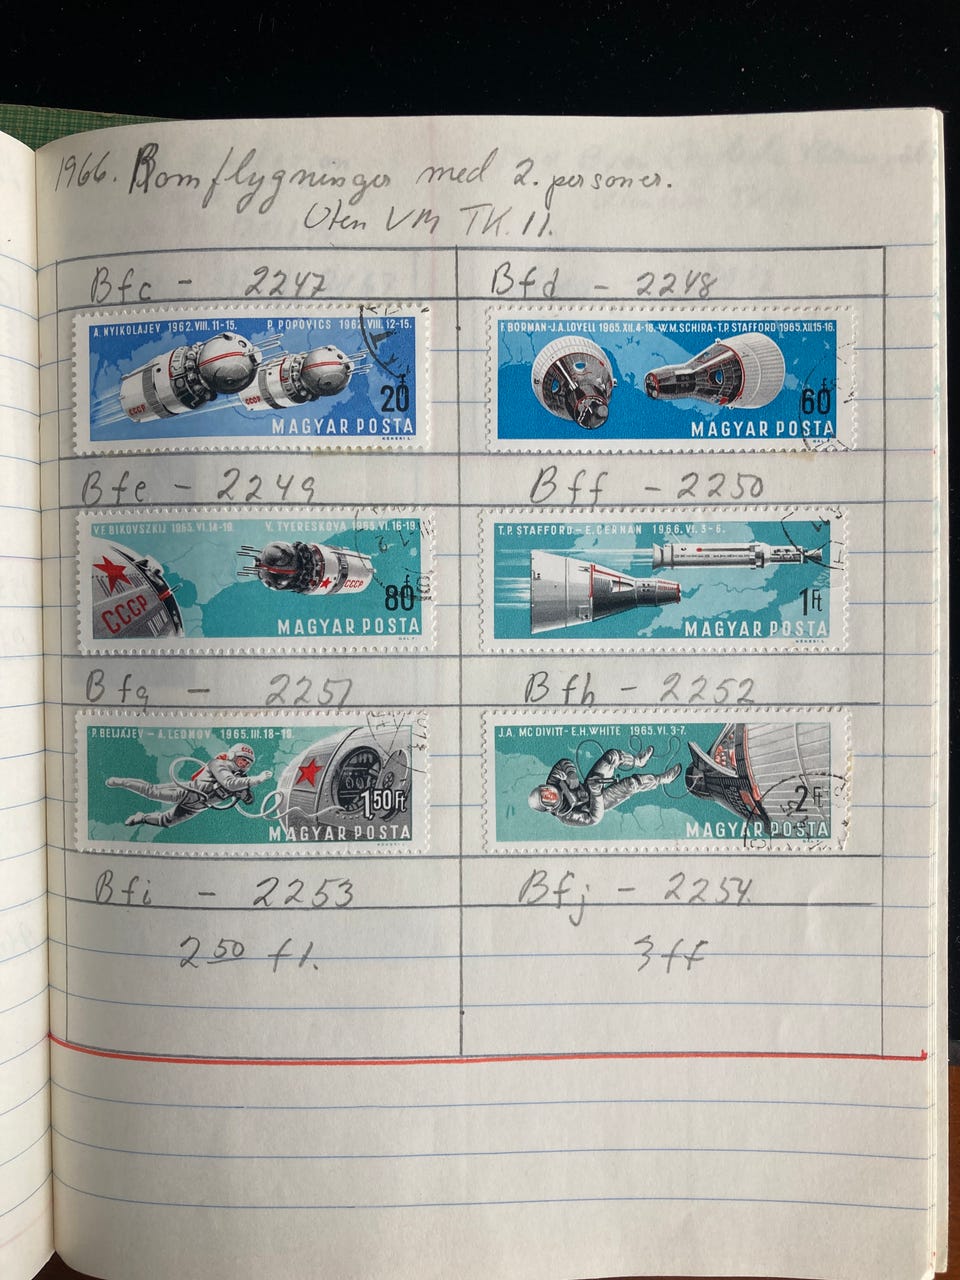 1966. Romflygninger med 2. personer.
Uten VM TK. 11.
Bfc - 2247
Bfd - 2248
A. NYIKOLAJEV 1962. VIII. 11-15. P. POPOVICS 1962. VIII. 12-15.
20 f
MAGYAR POSTA
F. BORMAN-J.A. LOVELL 1965. XII. 4-18. W.M. SCHIRA-T.P. STAFFORD 1965. XII 15-16.
60 f
MAGYAR POSTA
Bfe - 2249
Bff - 2250
V.F. BIKOVSZKIJ 1963. VI. 14-19. V. TYERESKOVA 1963. VI. 16-19.
CCCP
CCCP
80 f
MAGYAR POSTA
T.P. STAFFORD - E. CERNAN 1966. VI. 3-6.
1 Ft
MAGYAR POSTA
Bfg - 2251
Bfh - 2252
P. BELJAJEV - A. LEONOV 1965. III. 18-19.
1.50 Ft
MAGYAR POSTA
J.A. MC DIVITT - E.H. WHITE 1965. VI. 3-7.
2 Ft
MAGYAR POSTA
Bfi - 2253
Bfj - 2254.
2 50 ft.
3 ff